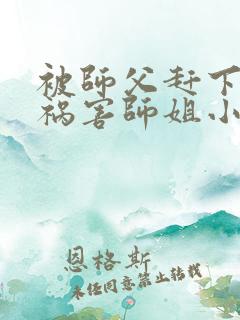 被師父赶下
祸害師姐小
恩格斯
未经同意禁止转载